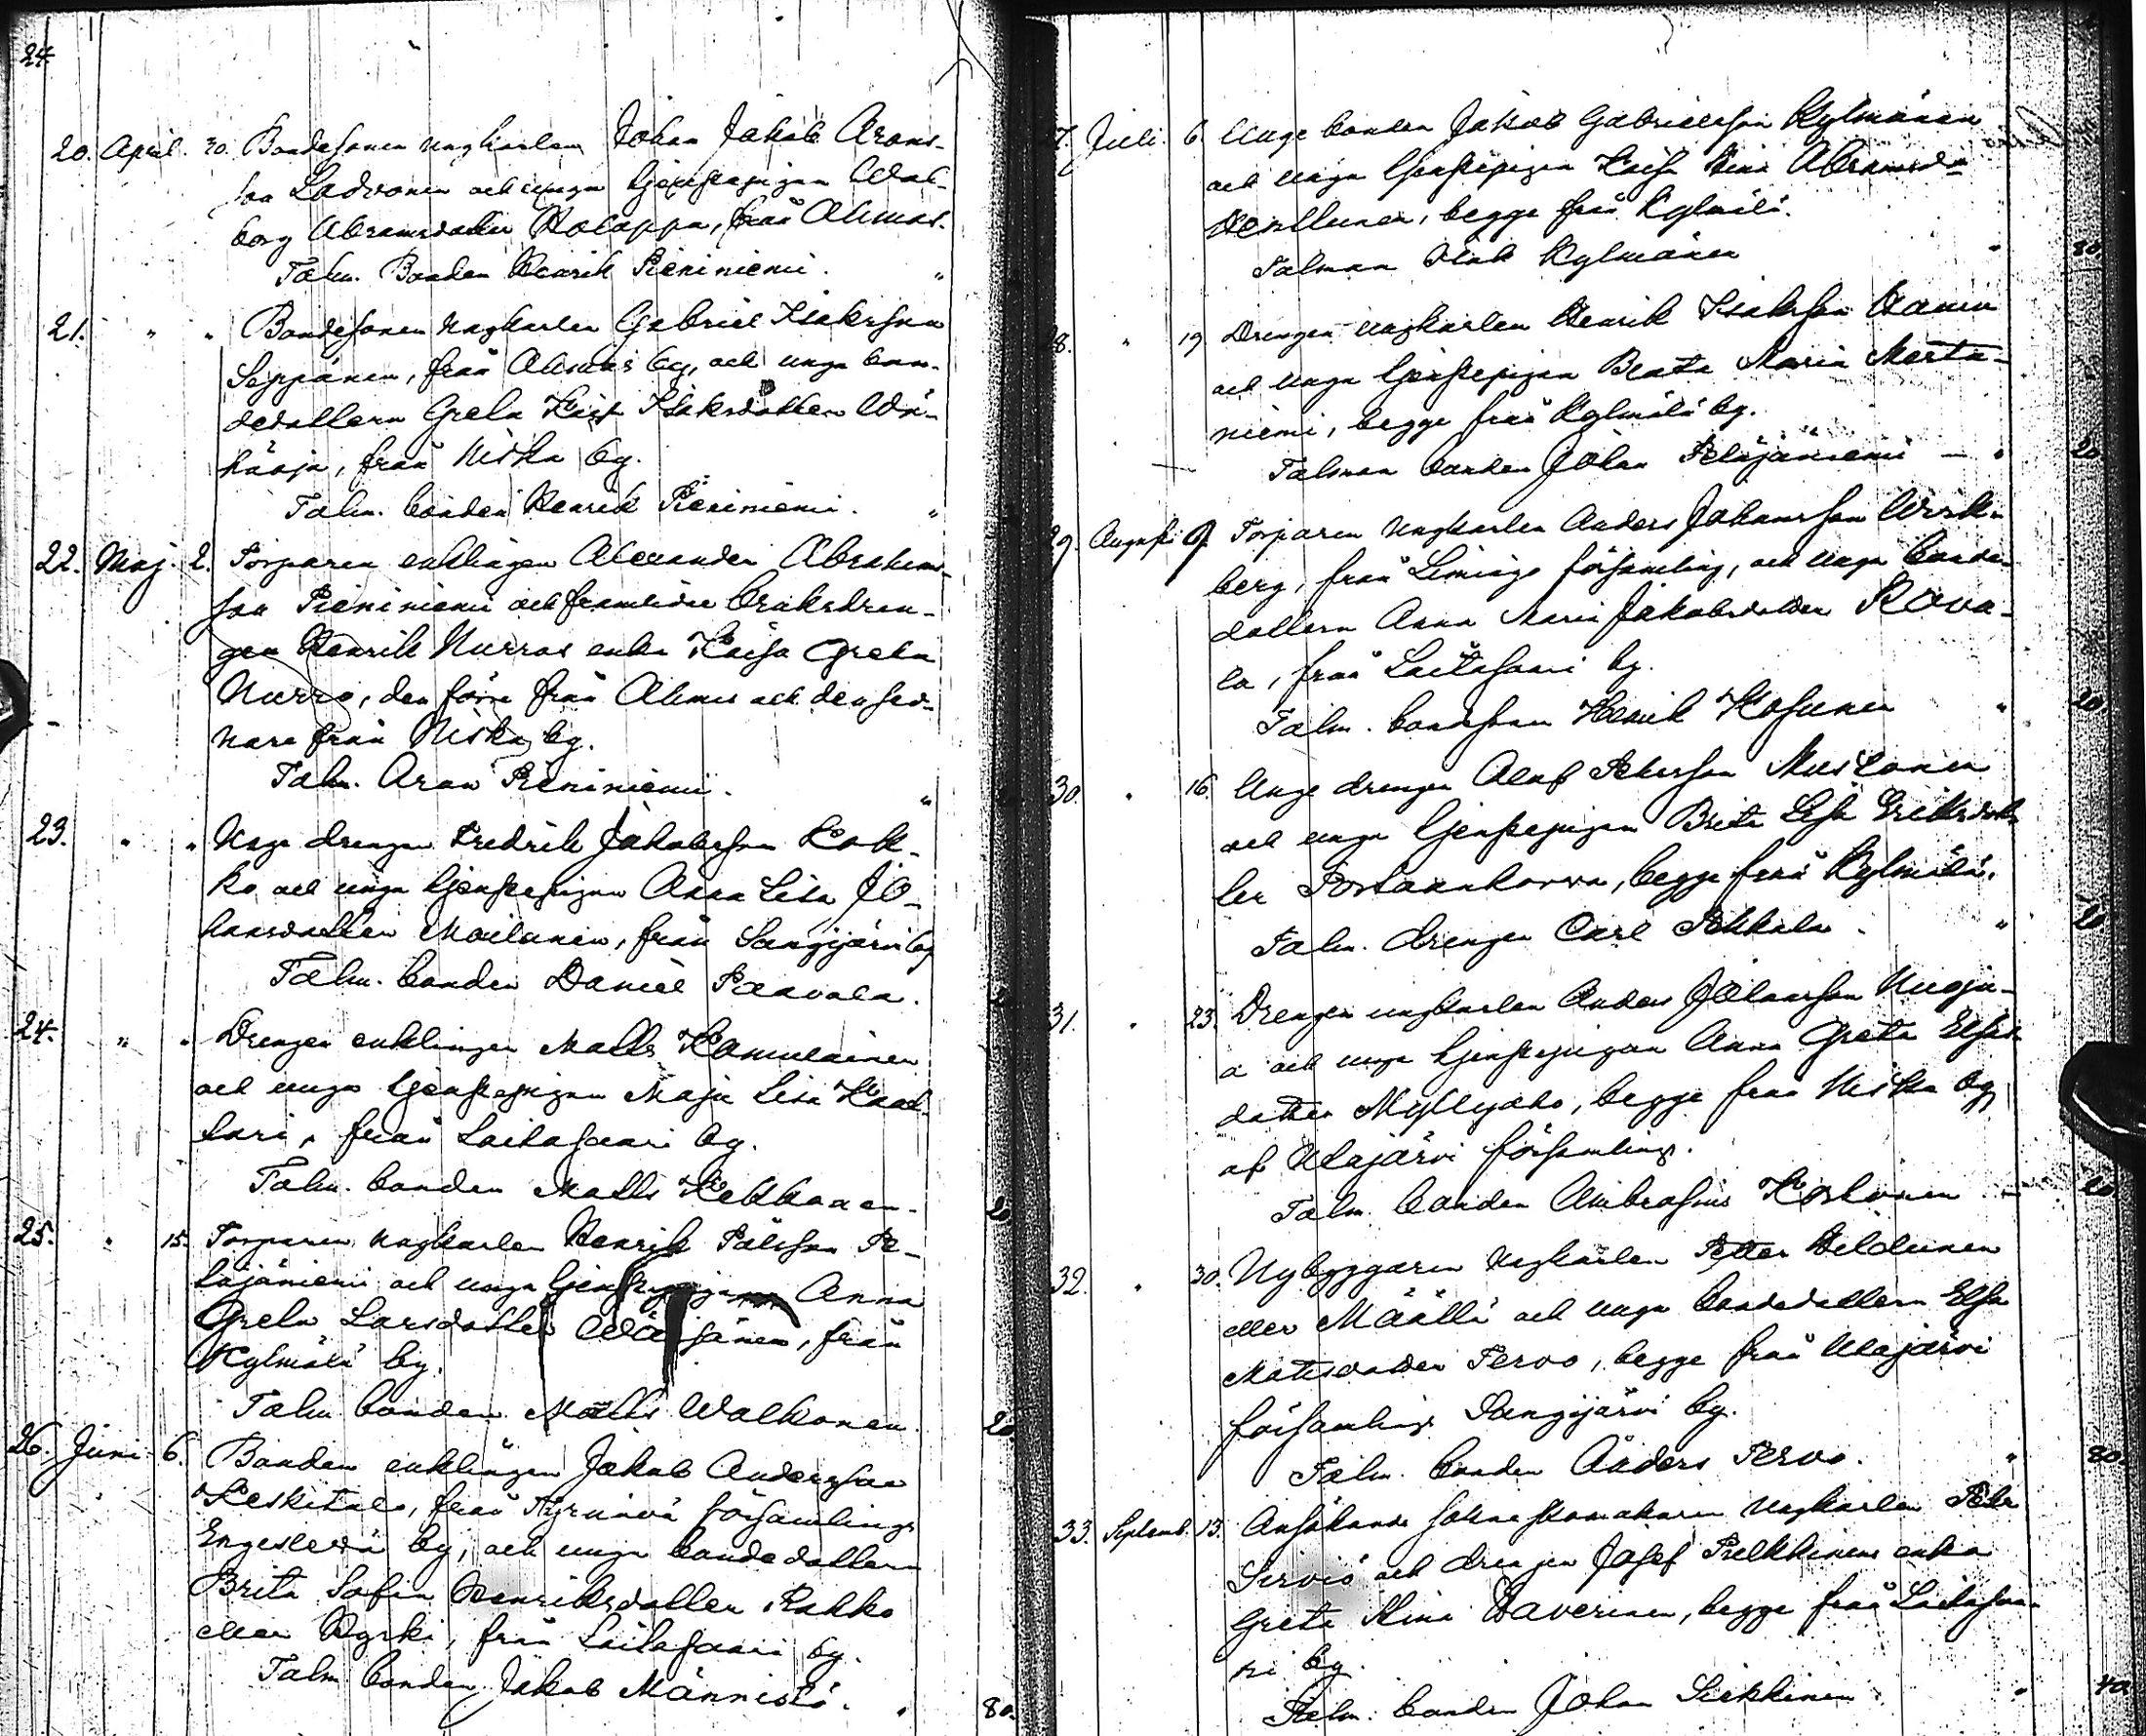 24
20. April. 30. Bondesonen ungkarlen Johan Jakob Arons-
son Ladvonen och unga tjenstepigan Wal-
borg Abramsdotter Holappa, från Ahmas.
Talm. Bonden Henrik Pieniniemi. "
21. " " Bondesonen ungkarlen Gabriel Isaksson
Seppänen, från Ahmas by, och unga bon-
dedottern Greta Kajsa Isaksdotter Wä-
häoja, från Niska by.
Talm. bonden Henrik Pieniniemi. "
22. Maj. 2. Torparen enklingen Alexander Abrahams-
son Pieniniemi och framlidne bruksdren-
gen Henrik Nurros enka Kaisa Greta
Nurro, den förre från Ahmas och den sed-
nare från Niska by.
Talm. Aron Pieniniemi. "
23. " " Unge drengen Fredrik Jakobsson Kok-
ko och unga tjenstepigan Anna Lisa Jo-
hansdotter Moilanen, från Sangijärvi by
Talm. bonden Daniel Paavola.
24. " " Drengen enklingen Matts Hamulainen
och unga tjenstepigan Maja Lisa
från Laitasaari by.
Talm. bonden Matts Kekkonen. 20
25. " 15. Torparen ungkarlen Henrik Pålsson Pe-
läjäniemi och unga tjenstepigan Anna
Greta Larsdotter Wäisänen, från
Kylmälä by.
Talm bonden Matts Walkonen. 20
26. Juni 6. Bonden enklingen Jakob Andersson
Keskitalo, från Tyrnävä församlings
Engeslevä by, och unga bondedottern
Brita Sofia Henriksdotter Kokko
eller Kyrki, från Laitasaari by.
Talm bonden Jakob Männistö. " 80.
7. Juli. 6 Unge bonden Jakob Gabrielsson Kylmänen
och unga tjenstepigan Kaisa Stina Abramsdr
Henttunen, begge från Kylmälä.
Talman Isak Kylmänen " 80
28. " 19 Drengen ungkarlen Henrik Isaksson Hamu
och unga tjenstepigan Beata Maria Merta-
niemi, begge från Kylmälä by.
Talman bonden Johan Peläjäniemi — " 20
29. Augusti 9. Torparen ungkarlen Anders Johansson Wirk-
berg, från Limingo församling, och unga bonde-
dottern Anna Maria Jakobsdotter Kova-
la, från Laitasaari by.
Talm. bondeson Henrik Kosunen " 20
30. " 16. Unge drengen Olof Petersson Mustonen
och unga tjenstepigan Brita Lisa Eriksdot-
ter Portaankorva, begge från Kylmälä.
Talm. drengen Carl Pekkala. " 20
31. " 23. Drengen ungkarlen Anders Johansson Nuoju-
a och unga tjenstepigan Anna Greta Elias-
dotter Myllyaho, begge från Niska by
af Utajärvi församling.
Talm. bonden Ambrosius Koskinen — 20
32. " 30. Nybyggaren ungkarlen Petter Hildunen
eller Määttä och unga bondedottern Elsa
Matsdotter Tervo, begge från Utajärvi
församlings Sangijärvi by.
Talm. bonden Anders Tervo. " 80.
33. Septemb. 13. Ansökande sockneskomakaren ungkarlen Pehr
Sirviö och drengen Josef Pelkkinens enka
Greta Stina Haverinen, begge från Laitasaa-
ri by.
Talm. bonden Johan Siekkinen. " 40